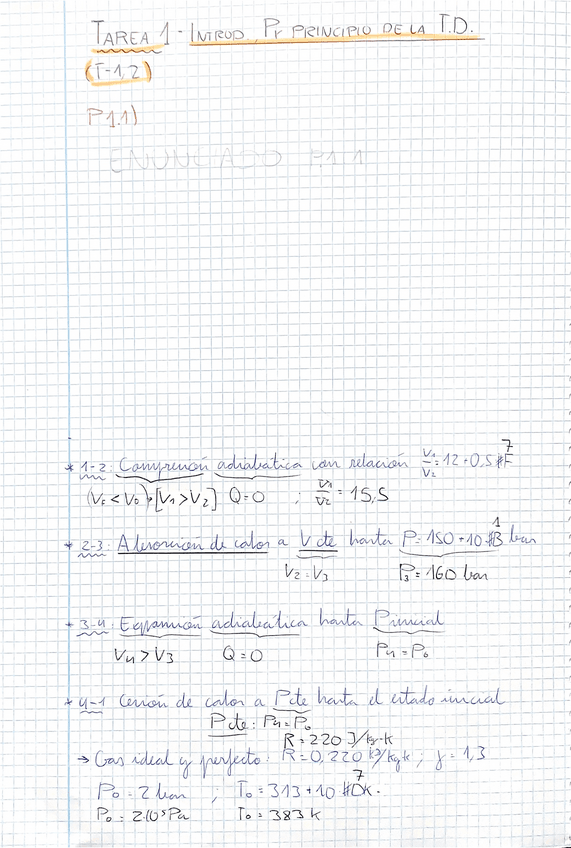 TAREA 1 - INTROD. Pr PRINCIPIO DE LA T.D.
(T-1,2)
P1.1)
ENUNCIADO P1.1
7
* 1-2: Compresión adiabática con relación V₁/V₂ = 12 + 0,5 #F
(V_F < V_0) → [V₁ > V₂] Q = 0 ; V₁/V₂ = 15,5
1
* 2-3: Absorción de calor a V cte hasta P = 150 + 10 · #B bar
V₂ = V₃ P₃ = 160 bar
* 3-4: Expansión adiabática hasta P inicial
V₄ > V₃ Q = 0 P₄ = P₀
* 4-1 Cesión de calor a P cte hasta el estado inicial
P cte: P₄ = P₀
R = 220 J/kg·K
→ Gas ideal y perfecto: R = 0,220 kJ/kgK ; γ = 1,3
7
P₀ = 2 bar ; T₀ = 313 + 10 #D K.
P₀ = 2·10⁵ Pa T₀ = 383 K